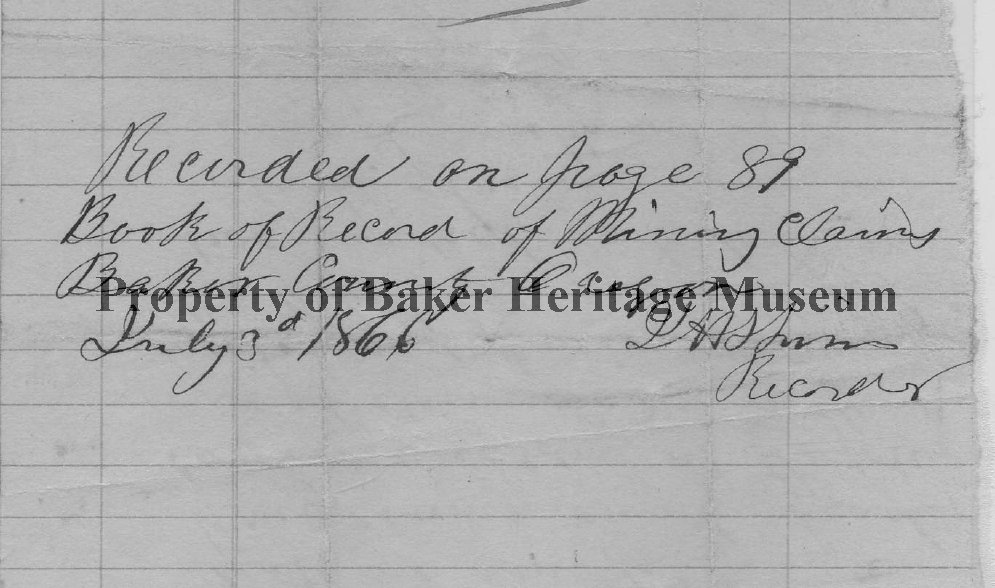 Recorded on page 89
Book of Record of Mining Claims
Baker County Oregon
Property of Baker Heritage Museum
July 3d 1866
Recorder